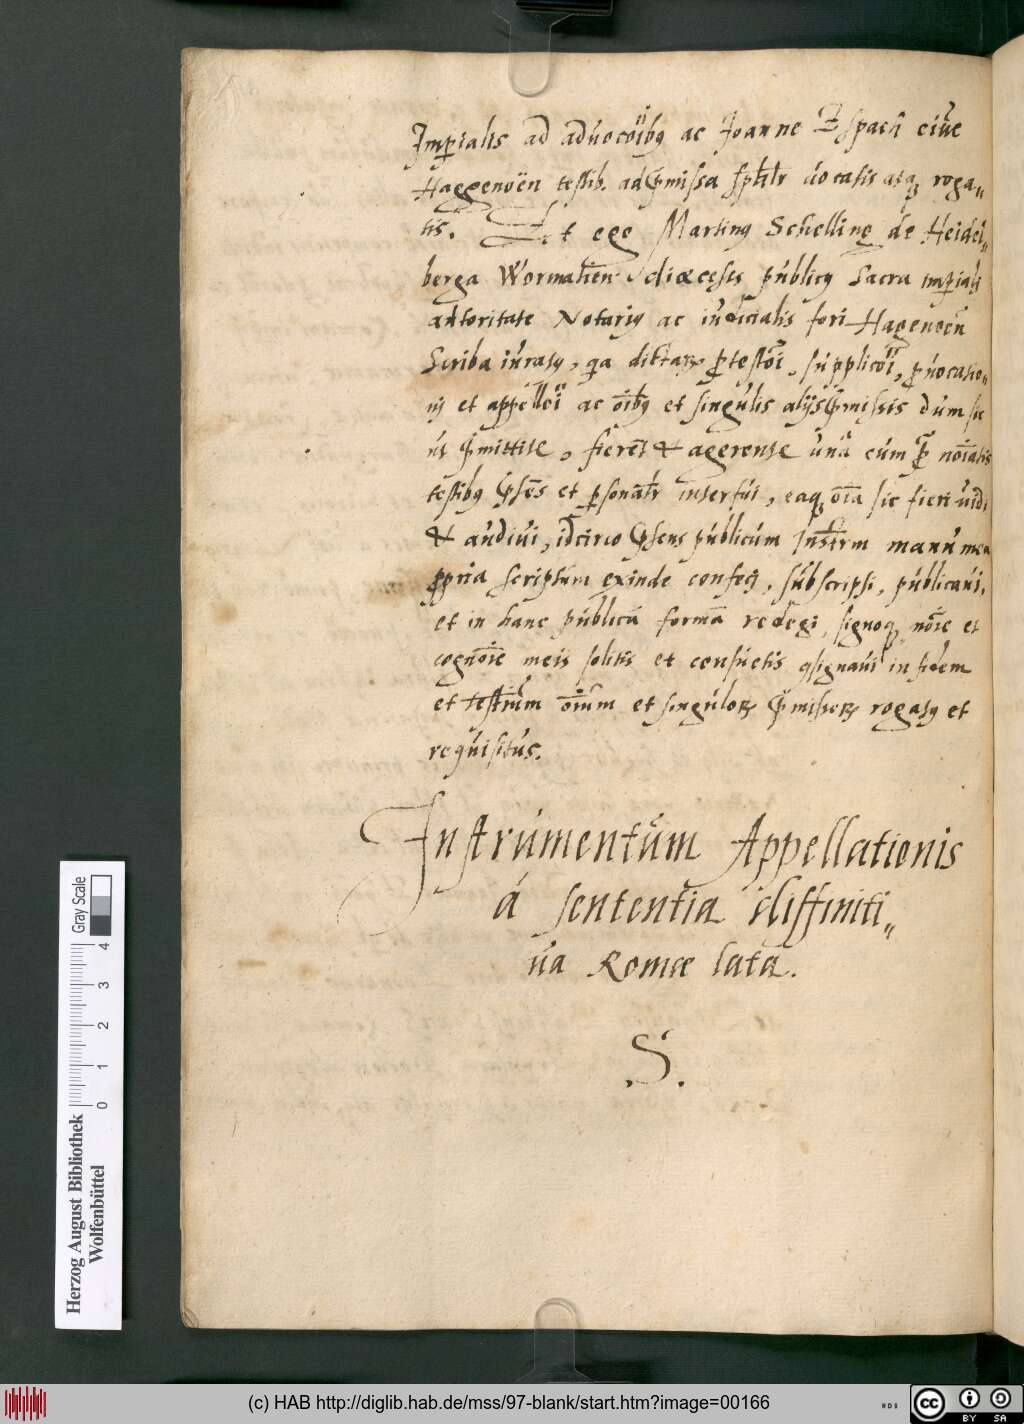 Imperialis ad aduocoïbꝫ ac Joanne Espach ciue
Haggenoën testib. ad p̄missa spālr uocatis atqꝫ roga„
tis. Et ego Martinꝰ Schelling de Heidel„
berga Wormatien diœcesis publicꝰ Sacra imperiali
autoritate Notariꝰ ac iudicialis fori Hagenoen̄
Scriba iuratꝰ, qa
nis et ac oïbꝫ et singulis alijs p̄missis dum sic
ut p̄mittitr, fierēt & agerentr unā cum p̄ noīatis
testibꝰ p̄sēs et personalr interfui, eaqꝫ oīa sic fieri uidi
& audiui, idcirco p̄sens publicum Instrm manu mea
ppria scriptum exinde confeci, subscripsi, publicaui,
et in hanc publicā formā redegi, signoqꝫ nōīe et
cognōīe meis solitis et consuetis ꝯsignaui in fidem
et testīum oīum et singulorꝝ p̄missorꝝ rogatꝰ et
requisitus.
Instrumentum Appellationis
á sententia diffiniti„
ua Romæ lata.
.S.
Herzog August Bibliothek
Wolfenbüttel
0 1 2 3 4
Gray Scale
(c) HAB http://diglib.hab.de/mss/97-blank/start.htm?image=00166
cc BY SA